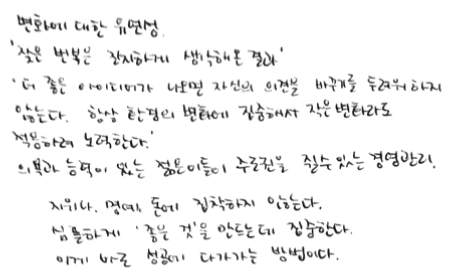 변화에 대한 유연성.
'잦은 번복은 진지하게 생각해온 결과'
'더 좋은 아이디어가 나오면 자신의 의견을 바꾸기를 두려워 하지
않는다. 항상 환경의 변화에 집중해서 작은 변화라도
적응하려 노력한다.'
의욕과 능력이 있는 젊은이들이 주도권을 쥘 수 있는 경영관리.
지위나, 명예, 돈에 집착하지 않는다.
심플하게 '좋은 것'을 만드는데 집중한다.
이게 바로 성공에 다가가는 방법이다.